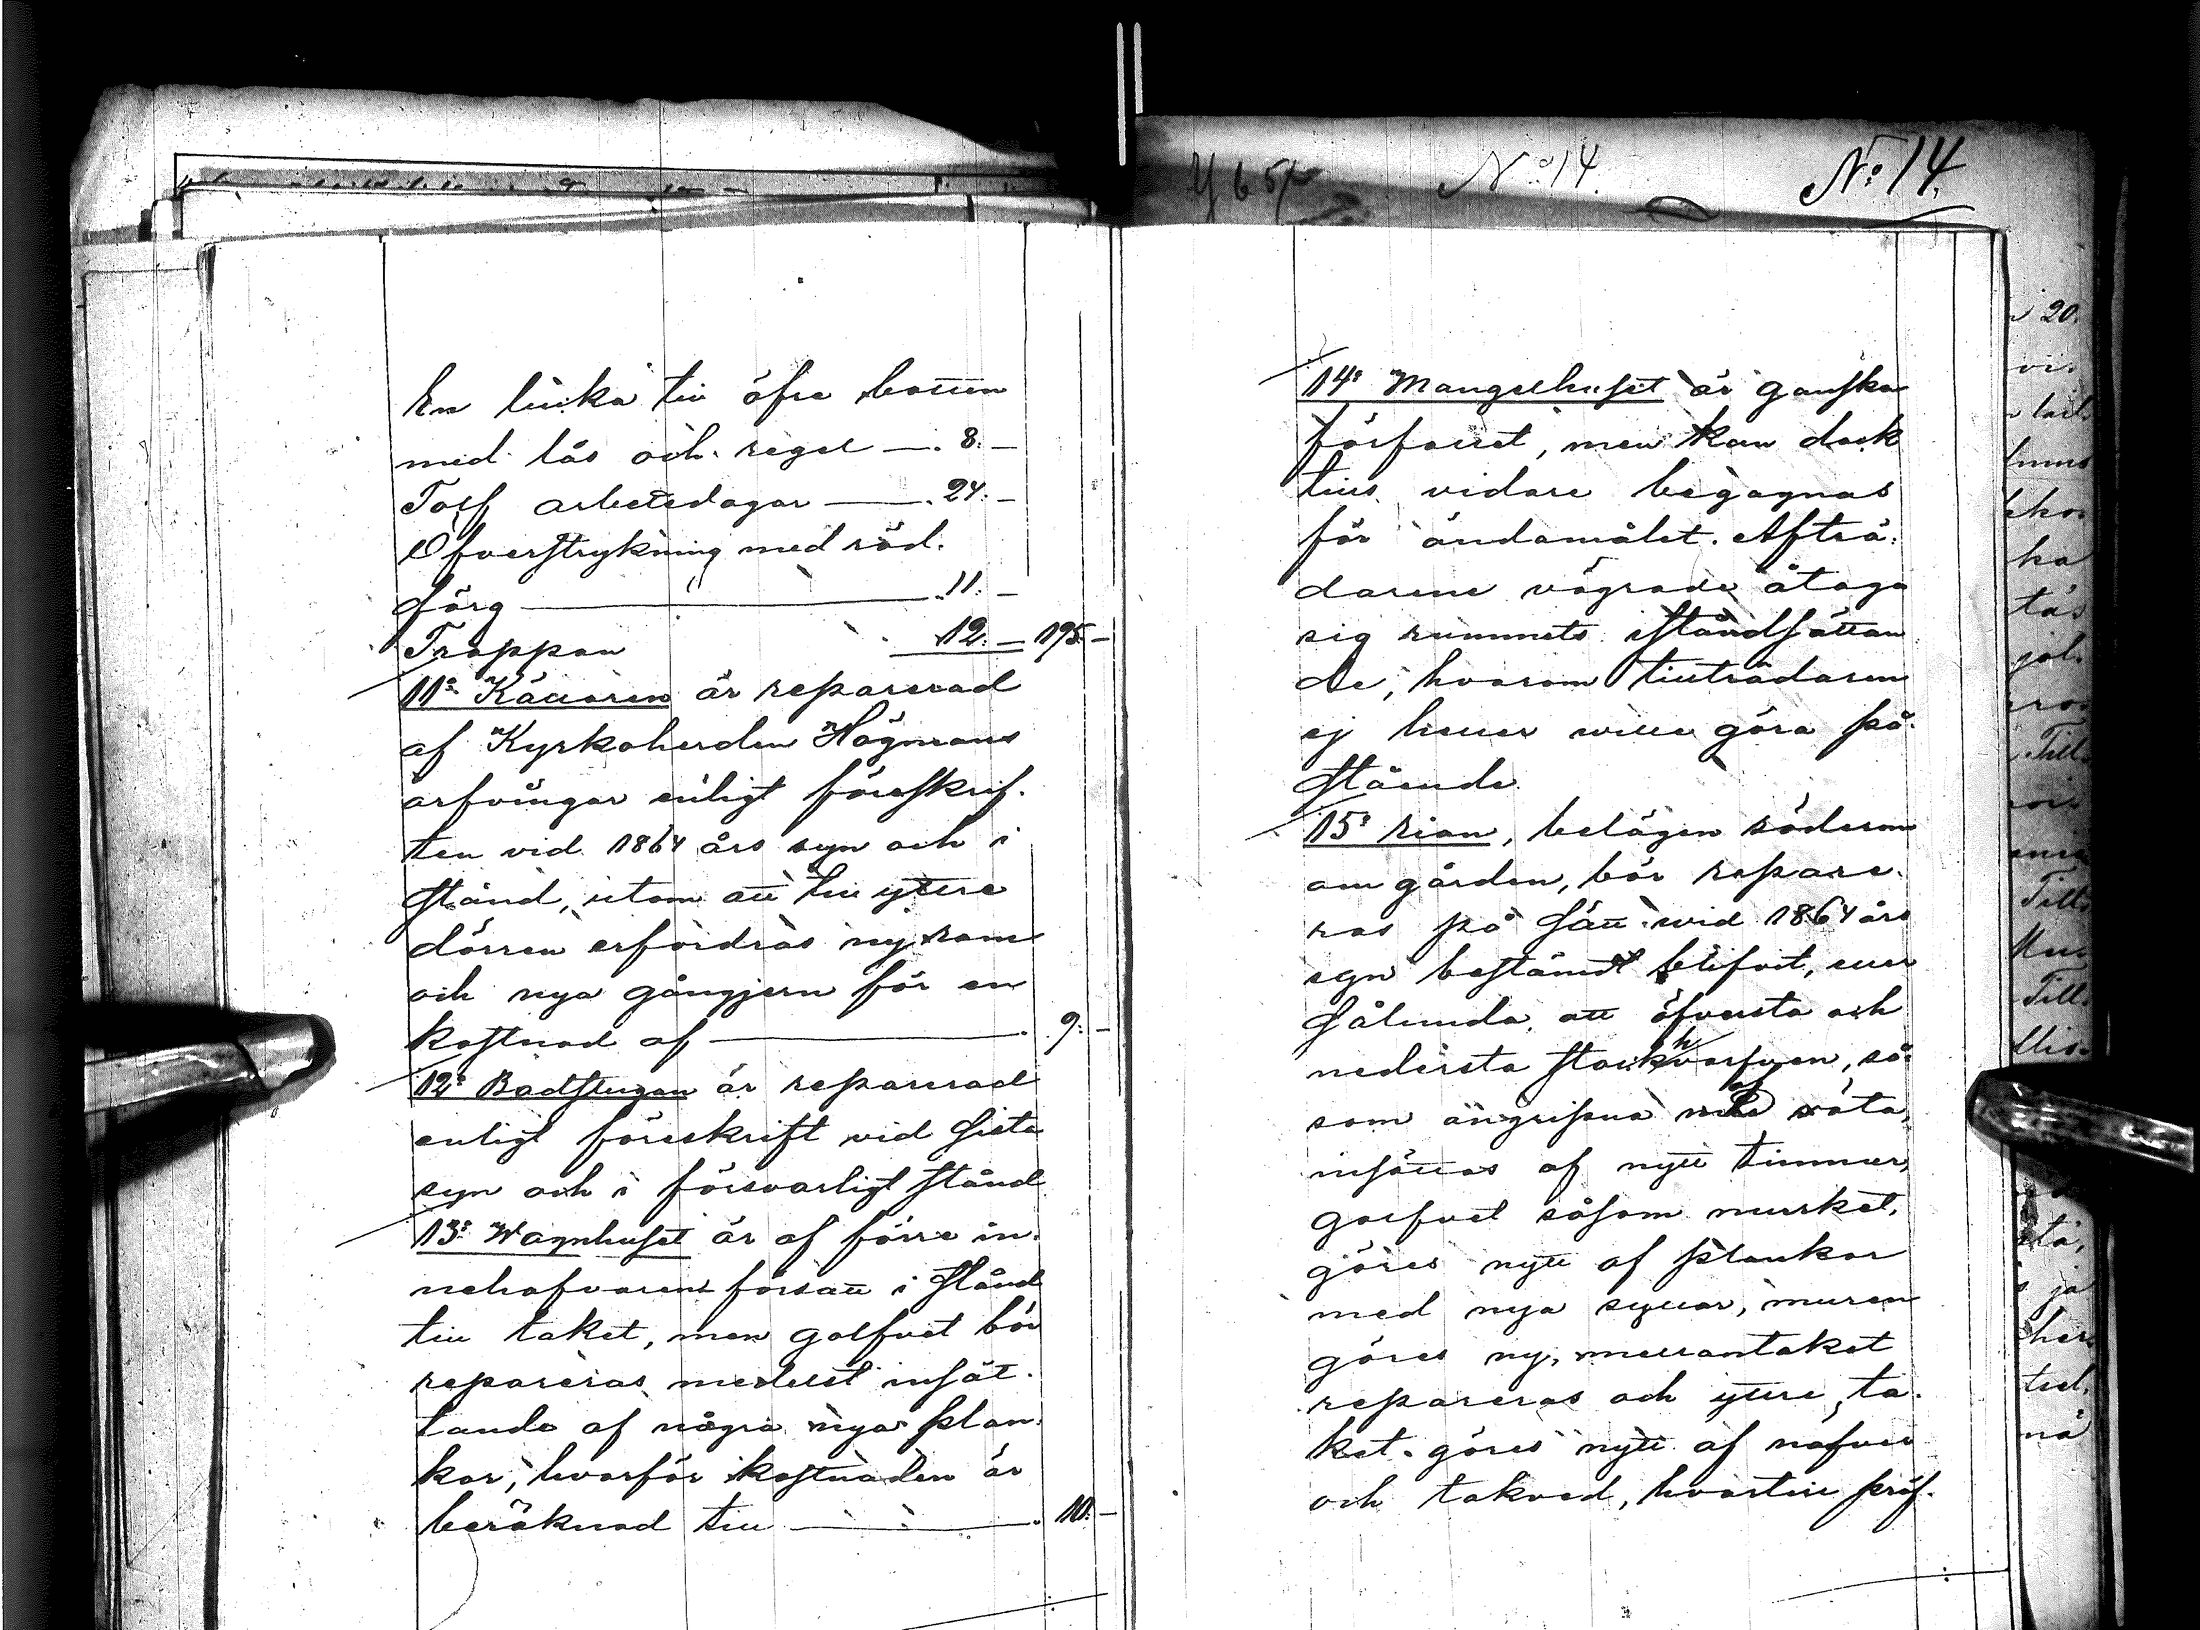 En lucka till öfre botten
med lås och regel —. 8. —
Tolf arbetsdagar —. 24. —
Öfverstrykning med röd-
färg —. 11. —
Trappan 12. — 195 —
11o Källaren är reparerad
af Kyrkoherden Högmans
arfvingar enligt föreskrif-
ten vid 1864 års syn och i
stånd, utom att till yttre
dörren erfordras ny ram
och nya gångjern för en
kostnad af —. 9. —
12o Badstugan är reparerad
enligt föreskrift vid sista
syn och i försvarligt stånd
13o Wagnhuset är af förre in-
nehafvaren försatt i stånd
till taket, men golfvet bör
repareras medelst insät-
tande af några nya plan-
kor, hvarför kostnaden är
beräknad till —. 10. —
No 14.
No 14.
14o Mangelhuset är ganska
förfallet, men kan dock
tills vidare begagnas
för ändamålet. Afträ-
darene vägrade åtaga
sig rummets iståndsättan
de, hvarom tillträdaren
ej heller wille göra på-
stående.
15o Rian, belägen söderom
om gården, bör repare-
ras på sätt wid 1864 års
syn bestämdt blifvit, eller
sålunda, att öfversta och
nedersta stockhvarfven, så-
som angripna af röta,
insättas af nytt timmer,
golfvet såsom murket,
göres nytt af plankor
med nya syllar, muren
göres ny, mellantaket
repareras och yttre ta-
ket göres nytt af näfver
och takved, hvartill pröf-